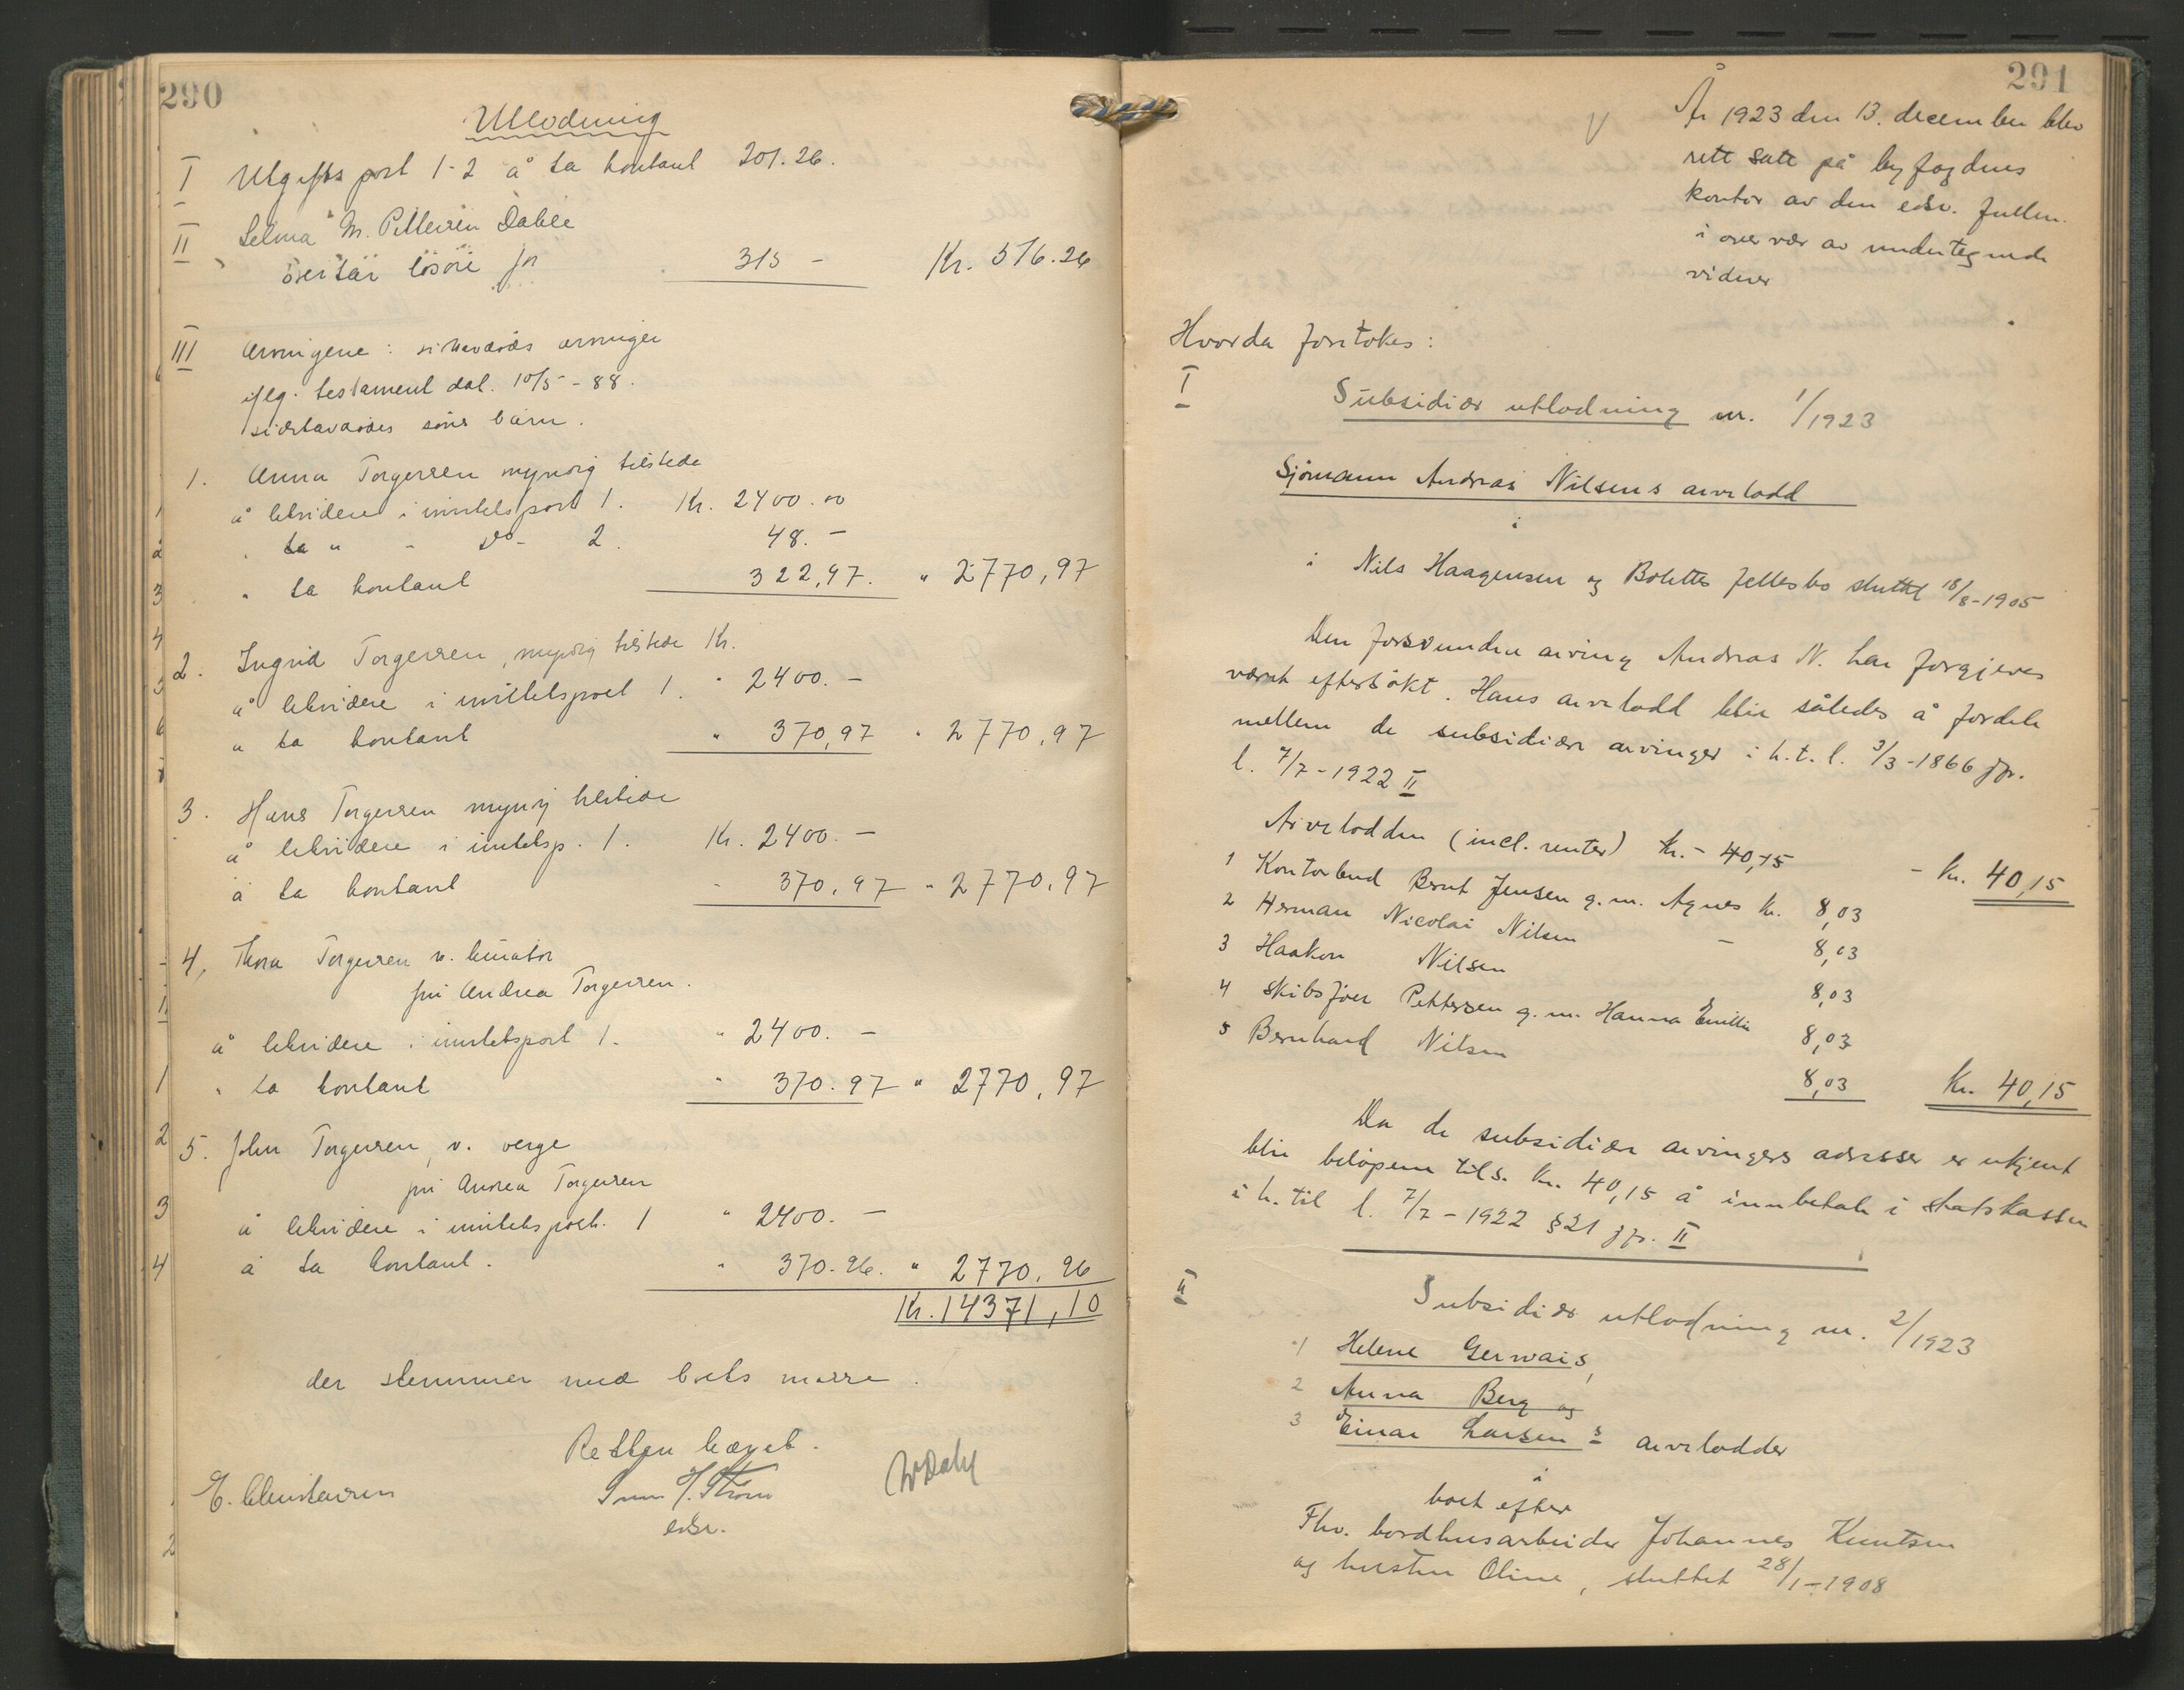 290
Utlodning
I Utgifts post 1-2 å ta kontant 201.26.
II Selma M. Pettersen Dahle
løsøre for 315 - Kr. 516.26
III Arvingene: arvinger
iflg. testament dat. 10/5 - 88.
søns barn.
1. Anna Torgersen myndig tilstede
å likvidere i inntektspost 1. Kr. 2400.00
" ta " - do - 2. 48.-
" ta kontant 322,97. " 2770,97
2. Ingrid Torgersen, myndig tilstede Kr.
å likvidere i inntektspost 1. " 2400.-
" ta kontant " 370,97 " 2770,97
3. Hans Torgersen myndig tilstede
å likvidere i inntektsp. 1. Kr. 2400.-
å ta kontant - 370,97 " 2770,97
4, Thora Torgersen v. kurator
fru Andrea Torgersen.
å likvidere i inntektspost 1. " 2400.-
" ta kontant " 370.97 " 2770,97
5. John Torgersen, v. verge
fru Andrea Torgersen
å likvidere i inntektspost. 1 " 2400.-
å ta kontant. " 370.96. " 2770,96
Kr. 14371,10
der stemmer med boets masse.
Retten hævet.
E. Christensen
edsv.
291
År 1923 den 13. december blev
rett satt på byfogdens
kontor av den edsv. fullm.
i overvær av undertegnede
vidner
Hvorda foretokes:
I Subsidiær utlodning nr. 1/1923
Sjømann Andreas Nilsens arvelodd
i
i Nils Haagensen og Bolettes fellesbo sluttet 18/8-1905
Den forsvundne arving Andreas N. har forgjeves
været eftersøkt. Hans arvelodd blir således å fordele
mellem de subsidiære arvinger i h.t. l. 3/3-1866 jfr.
l. 7/7-1922 II
Arvelodden (incl. renter) Kr. - 40,15 - Kr. 40,15
1 Kontorbud Bernt Jensen g.m. Agnes Kr. 8,03
2 Herman Nicolai Nilsen - 8,03
3 Haakon Nilsen 8,03
4 Skibsfører Pettersen g.m. Hanna Emilie 8,03
5 Bernhard Nilsen 8,03 Kr. 40,15
Da de subsidiære arvingers adresser er ukjent
blir beløpene tils. kr. 40,15 å innbetale i statskassen
i h. til l. 7/7-1922 §21 jfr. II
II Subsidiær utlodning nr. 2/1923
1 Helene Gervais,
2 Anna Berg og
3 Einar Larsens arvelodder
i
boet efter
Fhv. bordhusarbeider Johannes Knutsen
og hustru Oline, sluttet 28/1-1908